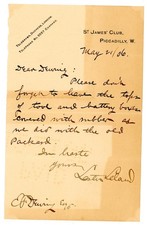 St JAMES' CLUB,
PICCADILLY, W.
May 21/06.
Dear Dewing:
Please don't
forget to have the tops
of tool and battery boxes
covered with rubber as
we did with the old
Packard.
In haste
Yours,
C F Dewing Esq